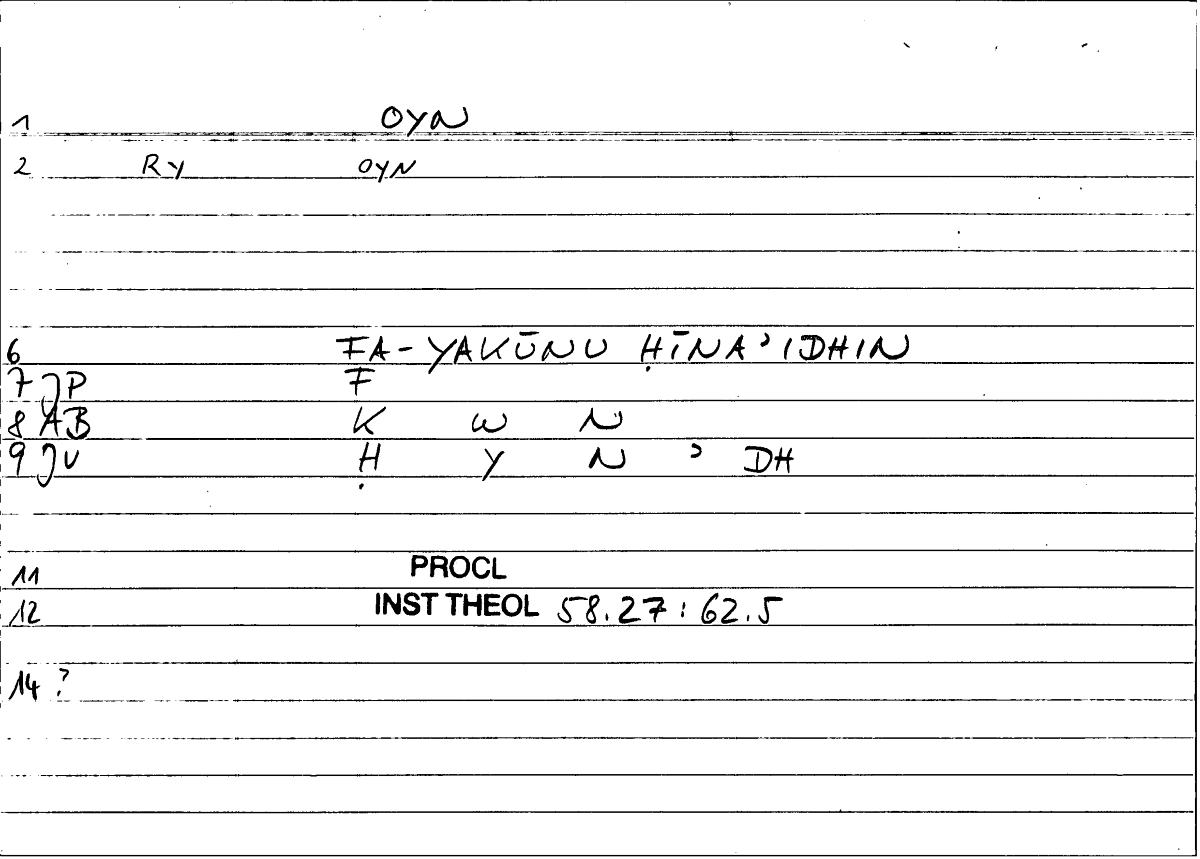 1 OYN
2 RY OYN
6 FA-YAKŪNU ḤĪNAʾIDHIN
7 JP F
8 AB K W N
9 JU Ḥ Y N ʾ DH
11 PROCL
12 INST THEOL 58.27:62.5
14 ?